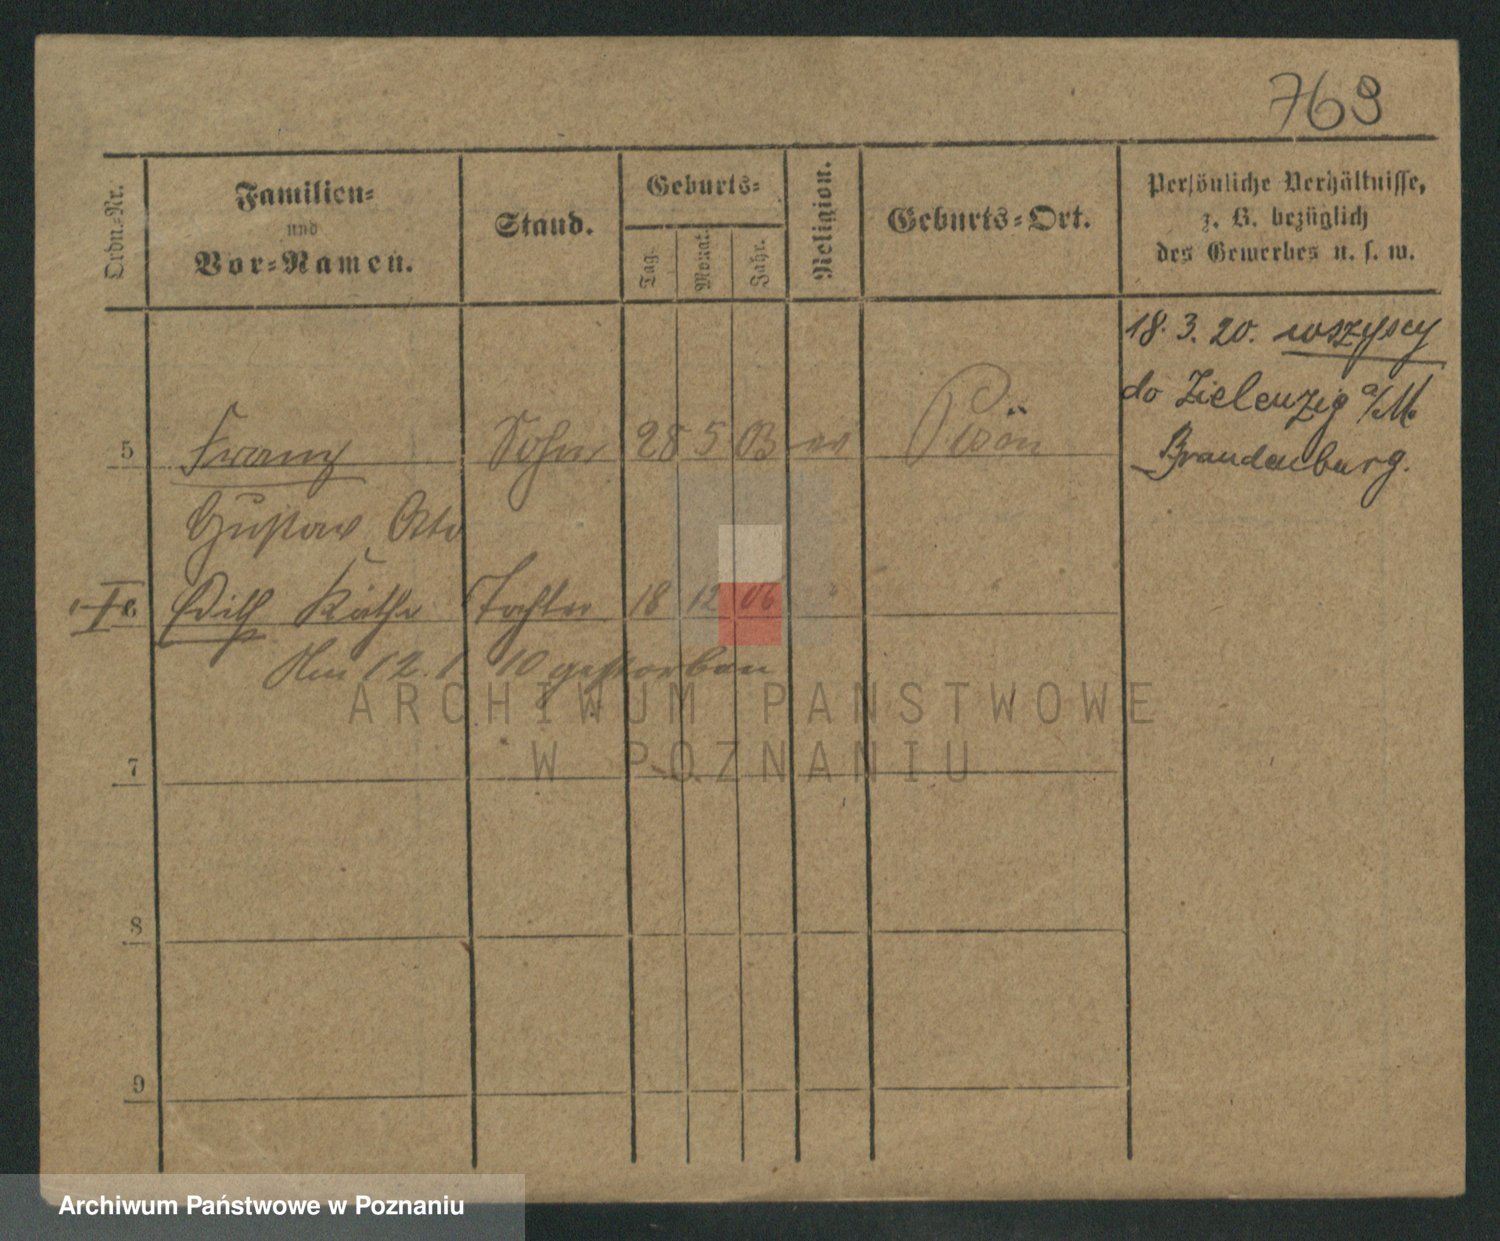 769
Ordn.-Nr.
Familien-
und
Vor-Namen.
Stand.
Geburts-
Tag.
Monat.
Jahr.
Religion.
Geburts-Ort.
Persönliche Verhältnisse,
z. B. bezüglich
des Gewerbes u. s. w.
18. 3. 20. wszyscy
do Zielenzig a/M.
Brandenburg.
5 Franz Sohn 28 5 03
Gustav Otto
Edith Käthe Tochter 18 12 06 "
Am 12. 1 10 gestorben
ARCHIWUM PAŃSTWOWE
W POZNANIU
7
8
9
Archiwum Państwowe w Poznaniu